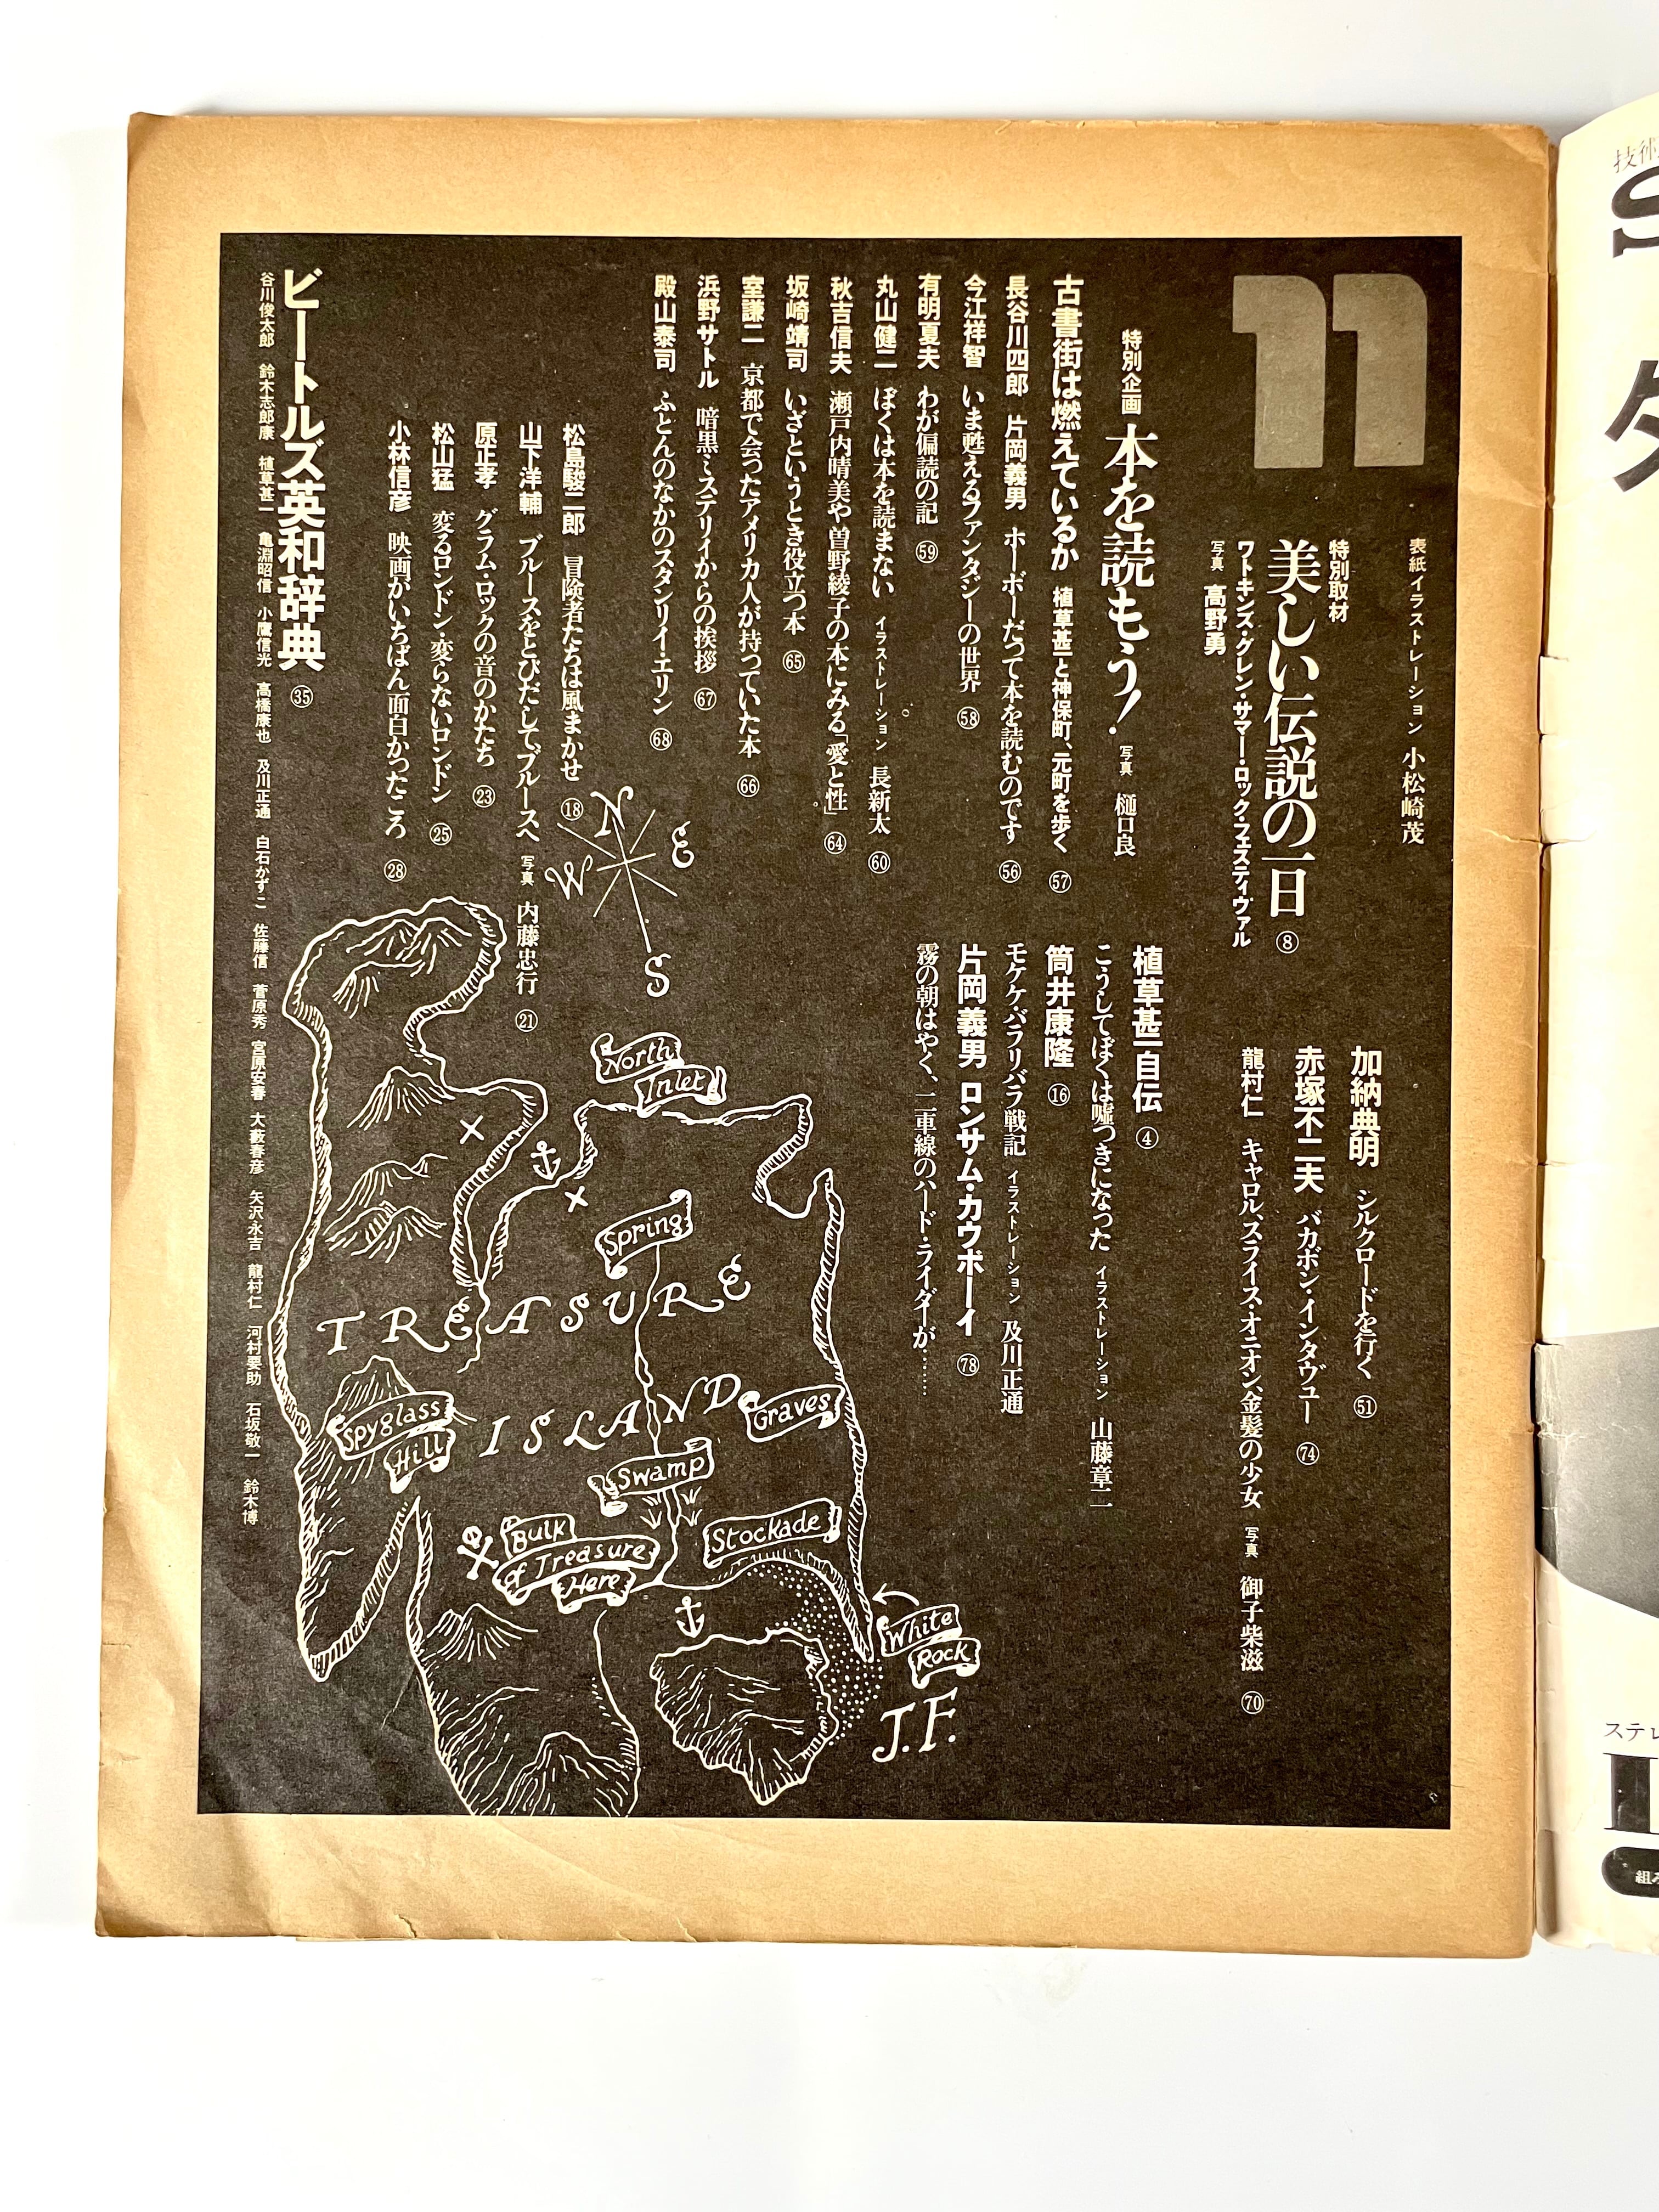 11
表紙イラストレーション 小松崎茂
特別取材
美しい伝説の一日 ⑧
ワトキンズ・グレン・サマー・ロックフェスティヴァル
写真 高野勇
加納典明 シルクロードを行く 51
赤塚不二夫 バカボン・インタヴュー 74
龍村仁 キャロル、スライス・オニオン、金髪の少女 写真 御子柴滋 70
特別企画 本を読もう! 写真 樋口良
古書街は燃えているか 植草甚一と神保町、元町を歩く 57
長谷川四郎 片岡義男 ホーボーだって本を読むのです 56
今江祥智 いま甦えるファンタジーの世界 58
有明夏夫 わが偏読の記 59
丸山健二 ぼくは本を読まない イラストレーション 長新太 60
秋吉信夫 瀬戸内晴美や曽野綾子の本にみる「愛と性」 64
坂崎靖司 いざというとき役立つ本 65
室謙二 京都で会ったアメリカ人が持っていた本 66
浜野サトル 暗黒ミステリイからの挨拶 67
殿山泰司 ふとんのなかのスタンリイ・エリン 68
植草甚一自伝 ④
こうしてぼくは嘘つきになった イラストレーション 山藤章二
筒井康隆 ⑯
モケケ・バラリバラ戦記 イラストレーション 及川正通
片岡義男 ロンサム・カウボーイ 78
霧の朝はやく、二車線のハード・ライダーが……
松島駿二郎 冒険者たちは風まかせ ⑱
山下洋輔 ブルースをとびだしてブルースへ 写真 内藤忠行 21
原正孝 グラム・ロックの音のかたち 23
松山猛 変るロンドン・変らないロンドン 25
小林信彦 映画がいちばん面白かったころ 28
ビートルズ英和辞典 35
谷川俊太郎 鈴木志郎康 植草甚一 亀淵昭信 小鷹信光 高橋康也 及川正通 白石かずこ 佐藤信 菅原秀 宮原安春 大藪春彦 矢沢永吉 龍村仁 河村要助 石坂敬一 鈴木博
N
E
W
S
North
Inlet
Spring
TREASURE
ISLAND
Spyglass
Hill
Graves
Swamp
Stockade
Bulk
of Treasure
Here
White
Rock
J.F.
技術
S
タ
ステレ